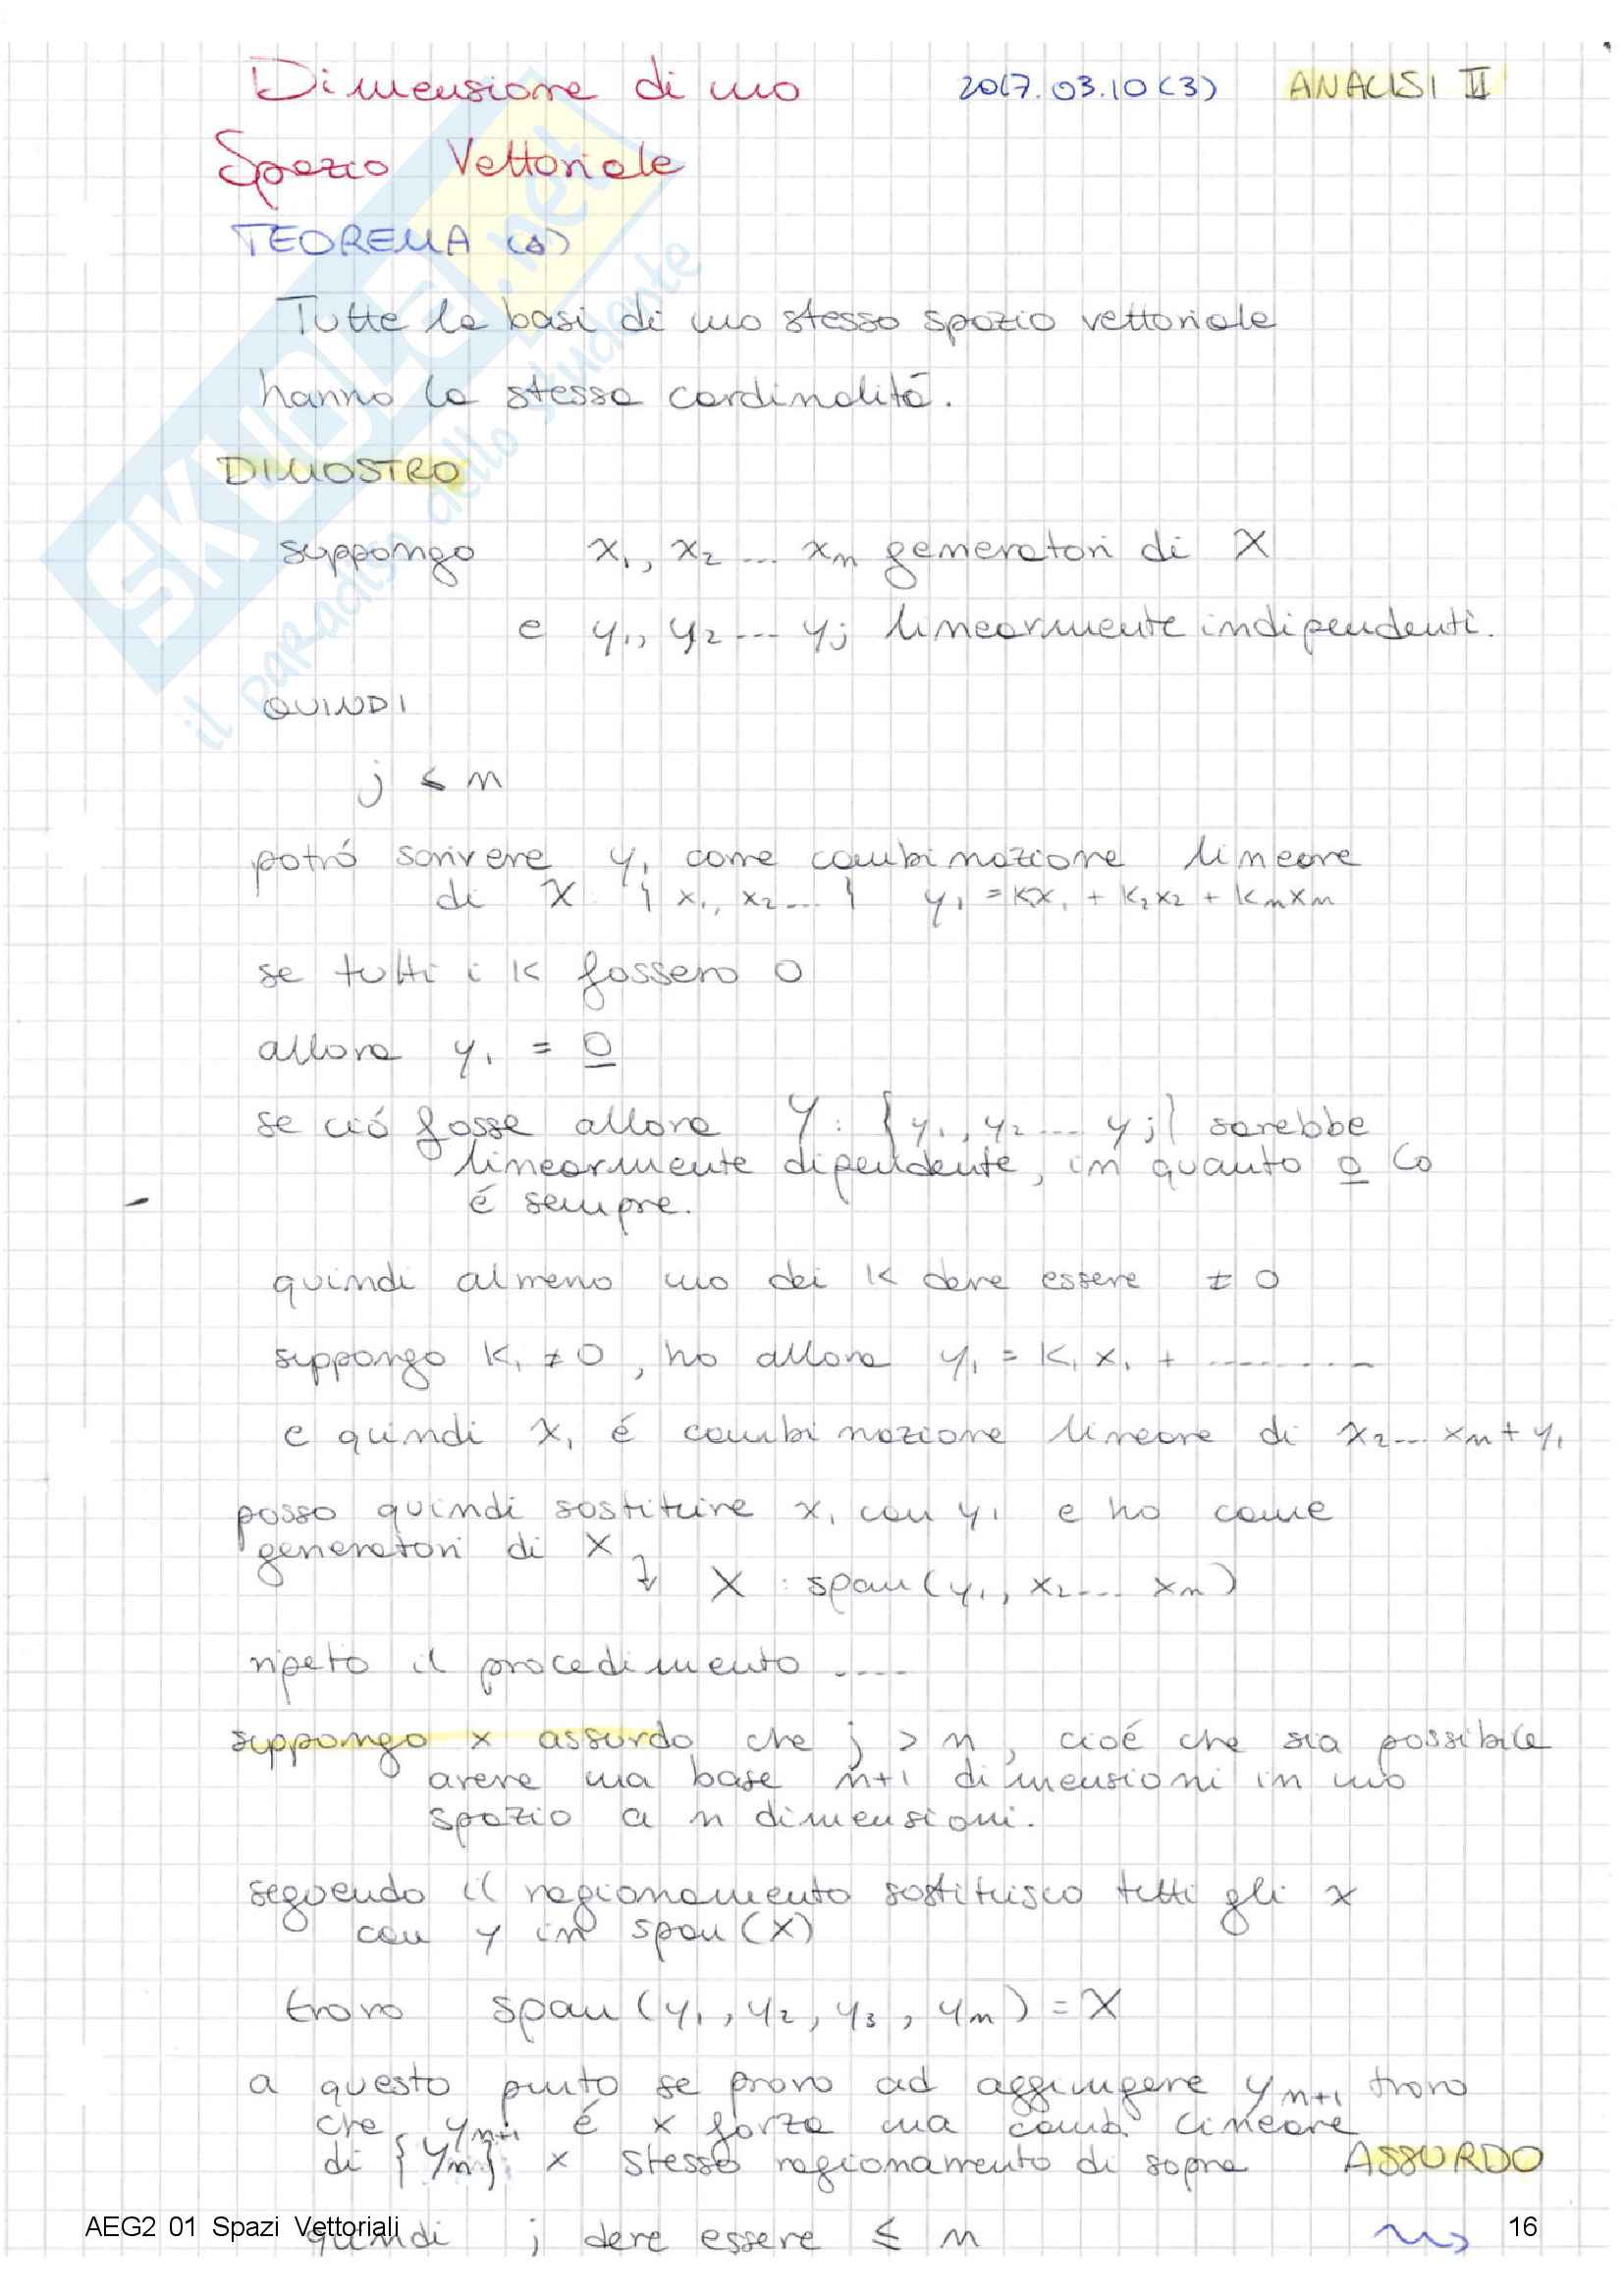 Dimensione di uno 2017.03.10 (3) ANALISI II
Spazio Vettoriale
TEOREMA (Δ)
Tutte le basi di uno stesso spazio vettoriale
hanno la stessa cardinalitá.
DIMOSTRO
suppongo x₁, x₂ ... xₙ generatori di X
e y₁, y₂ ... yⱼ linearmente indipendenti.
QUINDI
j ≤ n
potró scrivere y₁ come combinazione lineare
di X : { x₁, x₂ ... } y₁ = k₁x₁ + k₂x₂ + kₙxₙ
se tutti i k fossero 0
allora y₁ = 0
se ció fosse allora Y : {y₁, y₂ ... yⱼ} sarebbe
linearmente dipendente, in quanto 0 lo
é sempre.
quindi almeno uno dei k deve essere ≠ 0
suppongo k₁ ≠ 0, ho allora y₁ = k₁ x₁ + ........
e quindi x₁ é combinazione lineare di x₂ ... xₙ + y₁
posso quindi sostituire x₁ con y₁ e ho come
generatori di X
X : span (y₁, x₂ ... xₙ)
ripeto il procedimento ....
suppongo x assurdo che j > n, cioé che sia possibile
avere una base n+1 dimensioni in uno
spazio a n dimensioni.
seguendo il ragionamento sostituisco tutti gli x
con y in span (X)
trovo span (y₁, y₂, y₃, yₙ) = X
a questo punto se provo ad aggiungere yₙ₊₁ trovo
che yₙ₊₁ é x forza una comb. lineare
di {yₙ} x stesso ragionamento di sopra ASSURDO
quindi j deve essere ≤ n
AEG2 01 Spazi Vettoriali 16
SKUOLA.net
il paradiso dello studente